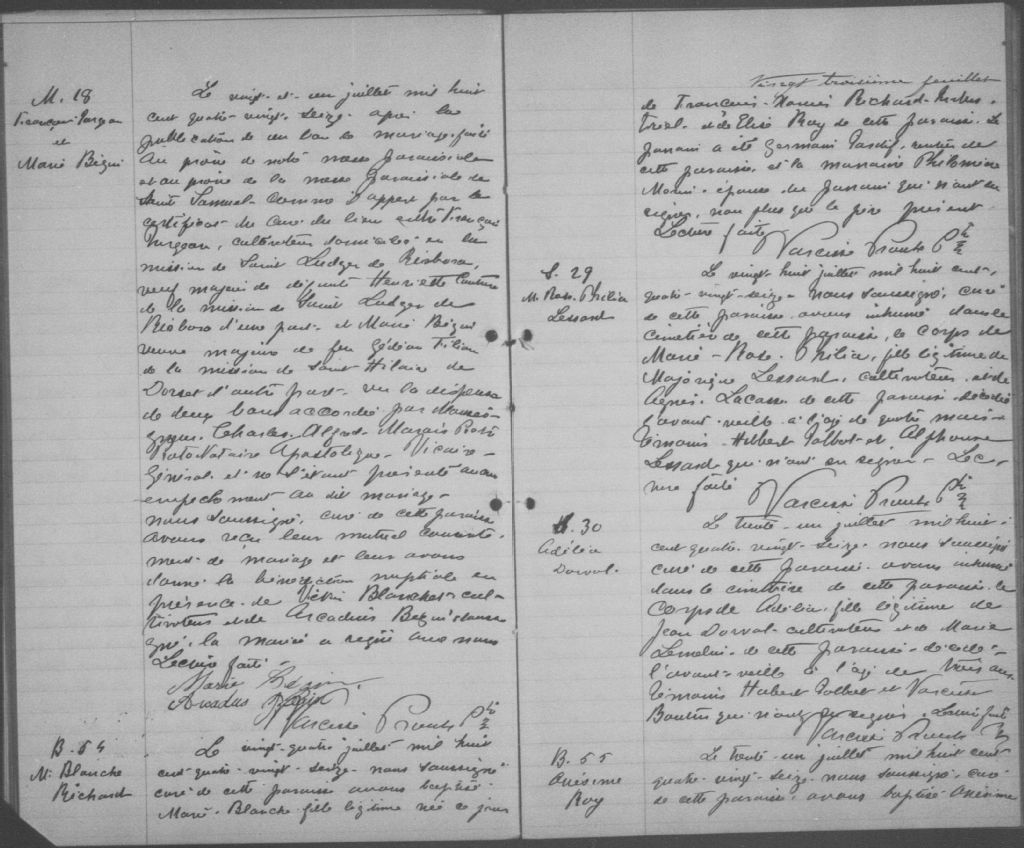 M. 18
François Turgeon
et
Marie Bégin
Le vingt-et-un juillet mil huit
cent quatre-vingt-seize après la
publication de un ban de mariage faite
au prône de notre messe paroissiale
et au prône de la messe paroissiale de
Saint Samuel comme il appert par le
certificat du curé du lieu entre François
Turgeon, cultivateur domicilié en la
mission de Saint Ludger de Risboro,
veuf majeur de défunte Henriette Couture
de la mission de Saint Ludger de
Risboro d'une part et Marie Bégin
veuve majeure de feu Gédéon Filion
de la mission de Saint Hilaire de
Dorset d'autre part vu la dispense
de deux bans accordée par Monsei-
gneur Charles Alfred Marois Proto
Notaire Apostolique Vicaire-
Général et ne s'étant présenté aucun
empêchement au dit mariage
nous soussigné, curé de cette paroisse
avons reçu leur mutuel consente-
ment de mariage et leur avons
donné la bénédiction nuptiale en
présence de Blanchet cul-
tivateur et de Arcadius Bégin
la mariée a signé avec nous
Lecture faite
Marie Bégin
Arcadius Bégin
Narcisse Proulx Ptre
B. 54
M. Blanche
Richard
Le vingt-quatre juillet mil huit
cent quatre-vingt-seize nous soussigné
curé de cette paroisse avons baptisé
Marie Blanche fille légitime née ce jour
Vingt troisième feuillet
de François-Xavier Richard Indus-
triel et de Elise Roy de cette paroisse. Le
parrain a été Germain Tardif, rentier de
cette paroisse et la marraine Philomène
Morin épouse du parrain qui n'ont su
signer, non plus que le père présent
Lecture faite
Narcisse Proulx Ptre
S. 29
M. Rose Philia
Lessard
Le vingt huit juillet mil huit cent
quatre-vingt-seize nous soussigné, curé
de cette paroisse avons inhumé dans le
cimetière de cette paroisse, le corps de
Marie-Rose-Philia, fille légitime de
Majorique Lessard, cultivateur et de
Agnès Lacasse de cette paroisse décédée
l'avant-veille à l'âge de quatre mois
Témoins Hubert Talbot et Alphonse
Lessard qui n'ont su signer. Lec-
ture faite
Narcisse Proulx Ptre
S. 30
Adélia
Dorval
Le trente-un juillet mil huit
cent quatre-vingt-seize nous soussigné
curé de cette paroisse avons inhumé
dans le cimetière de cette paroisse le
corps de Adélia, fille légitime de
Jean Dorval cultivateur et de Marie
Lemelin de cette paroisse décédée
l'avant-veille à l'âge de trois ans
Témoins Hubert Talbot et Narcisse
Boutin qui n'ont su signer. Lecture faite
Narcisse Proulx Ptre
B. 55
Onésime
Roy
Le trente un juillet mil huit cent
quatre-vingt-seize nous soussigné, curé
de cette paroisse, avons baptisé Onésime